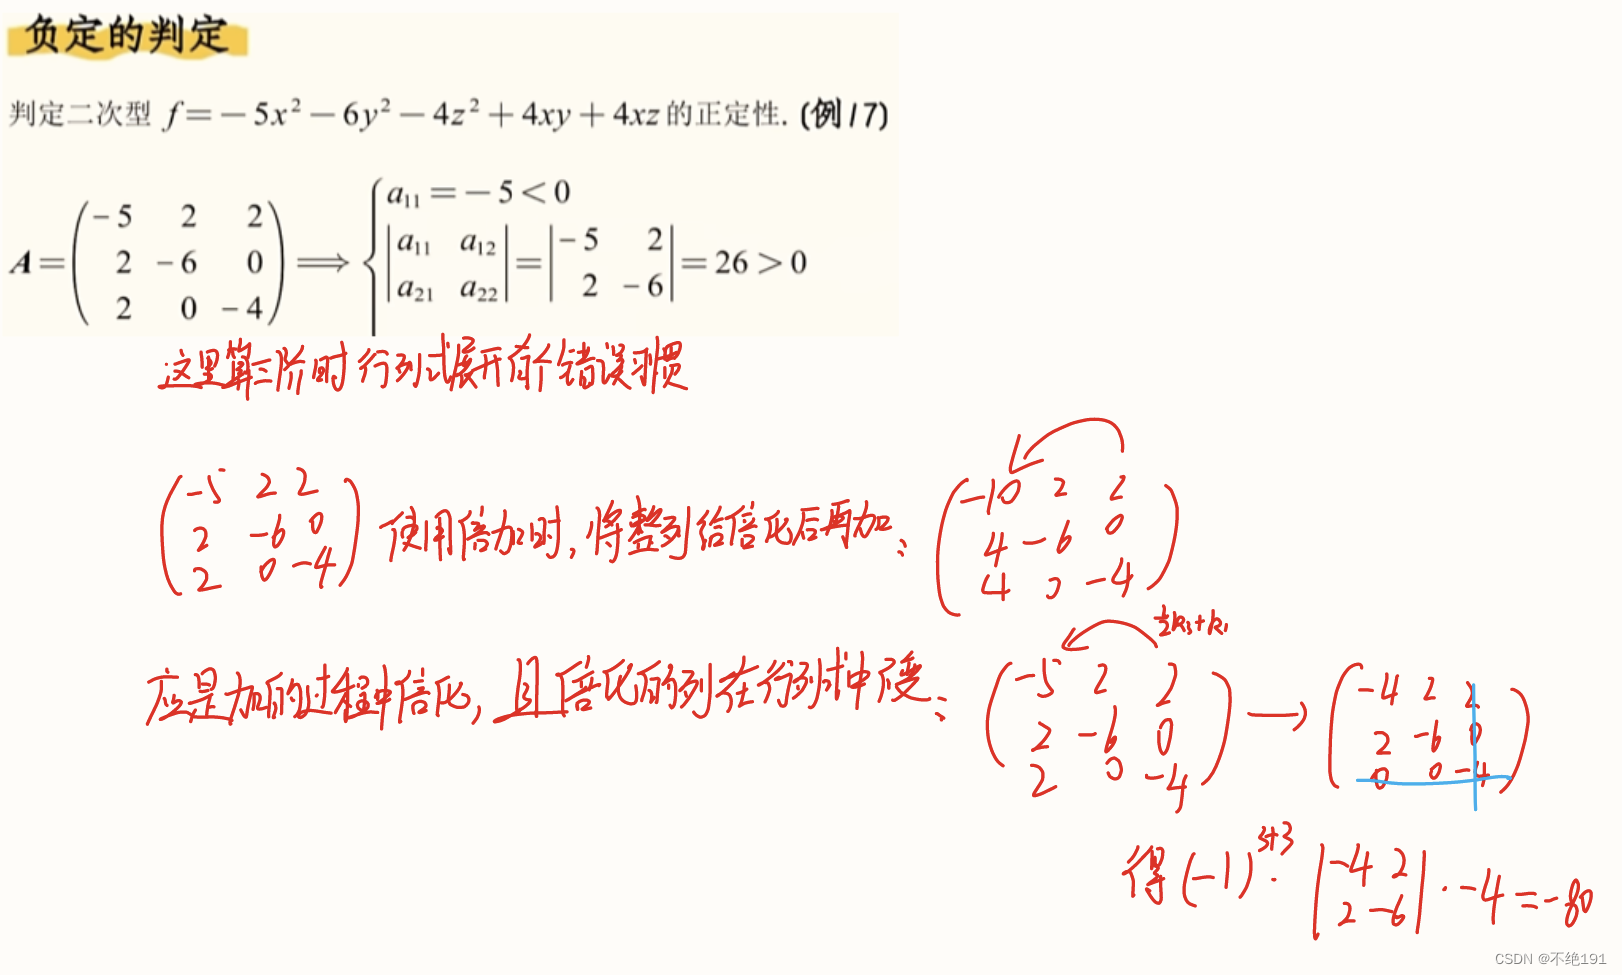 负定的判定
判定二次型 f = − 5x² − 6y² − 4z² + 4xy + 4xz 的正定性. (例17)
A = ( −5 2 2 ; 2 −6 0 ; 2 0 −4 ) ⟹ { a₁₁ = − 5 < 0
| a₁₁ a₁₂ ; a₂₁ a₂₂ | = | −5 2 ; 2 −6 | = 26 > 0
这里算三阶时行列式展开有个错误习惯
( −5 2 2 ; 2 −6 0 ; 2 0 −4 ) 使用倍加时, 将整列给倍化后再加: ( −10 2 2 ; 4 −6 0 ; 4 0 −4 )
应是加的过程中倍化, 且倍化的列在行列式中不变: ( −5 2 2 ; 2 −6 0 ; 2 0 −4 ) → ( −4 2 2 ; 2 −6 0 ; 0 0 −4 )
得 (−1)³⁺³ · | −4 2 ; 2 −6 | · −4 = −80
CSDN @不绝191